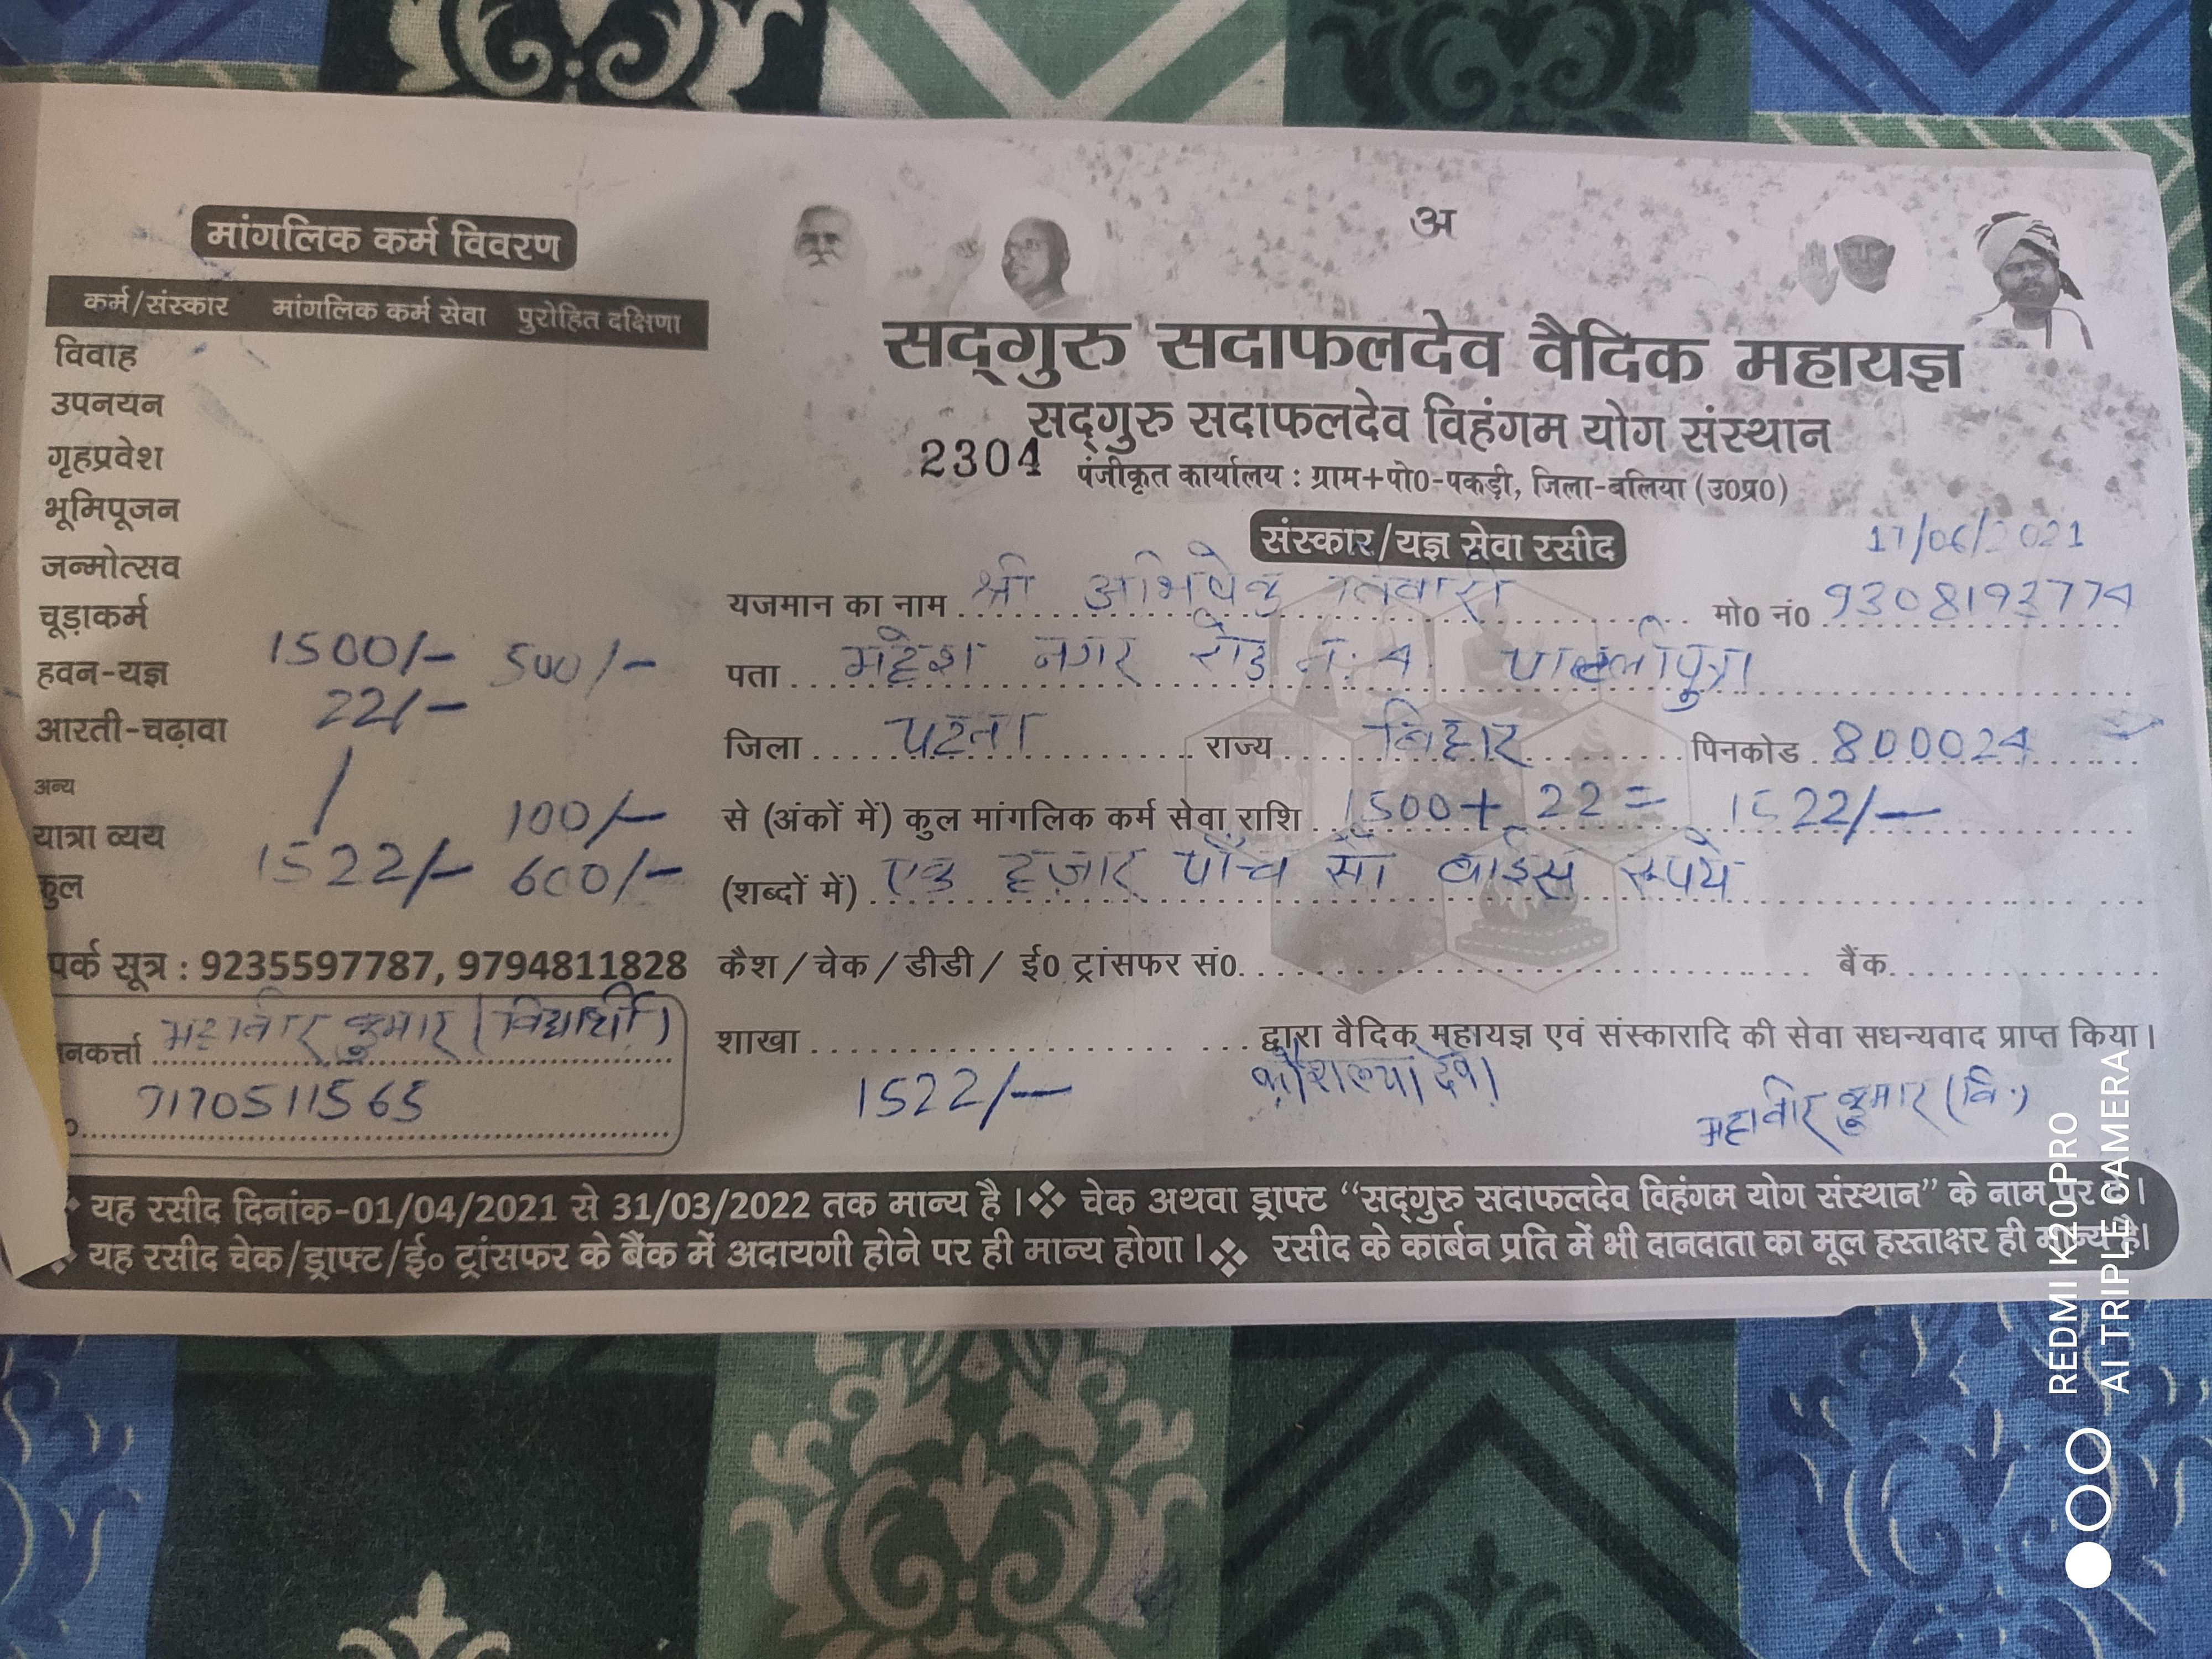 मांगलिक कर्म विवरण
कर्म/संस्कार मांगलिक कर्म सेवा पुरोहित दक्षिणा
विवाह
उपनयन
गृहप्रवेश
भूमिपूजन
जन्मोत्सव
चूड़ाकर्म
हवन-यज्ञ 1500/- 500/-
आरती-चढ़ावा 22/-
अन्य
यात्रा व्यय 100/-
कुल 1522/- 600/-
पर्क सूत्र : 9235597787, 9794811828
नकर्त्ता महावीर कुमार (विद्यार्थी)
7170511565
अ
सद्गुरु सदाफलदेव वैदिक महायज्ञ
सद्गुरु सदाफलदेव विहंगम योग संस्थान
2304 पंजीकृत कार्यालय : ग्राम+पो0-पकड़ी, जिला-बलिया (उ0प्र0)
संस्कार/यज्ञ सेवा रसीद 17/06/2021
यजमान का नाम श्री अभिषेक तिवारी मो0 नं0 9308193774
पता महेश नगर रोड नं. 4
जिला पटना राज्य बिहार पिनकोड 800024
से (अंकों में) कुल मांगलिक कर्म सेवा राशि 1500 + 22 = 1522/-
(शब्दों में) एक हज़ार पाँच सौ बाईस रूपये
कैश / चेक / डीडी / ई0 ट्रांसफर सं0 बैंक
शाखा द्वारा वैदिक महायज्ञ एवं संस्कारादि की सेवा सधन्यवाद प्राप्त किया।
1522/- कौशल्या देवी महावीर कुमार (वि.)
यह रसीद दिनांक-01/04/2021 से 31/03/2022 तक मान्य है। ❖ चेक अथवा ड्राफ्ट “सद्गुरु सदाफलदेव विहंगम योग संस्थान” के नाम पर दें।
यह रसीद चेक/ड्राफ्ट/ई० ट्रांसफर के बैंक में अदायगी होने पर ही मान्य होगा। ❖ रसीद के कार्बन प्रति में भी दानदाता का मूल हस्ताक्षर ही मान्य है।
REDMI K20 PRO
AI TRIPLE CAMERA